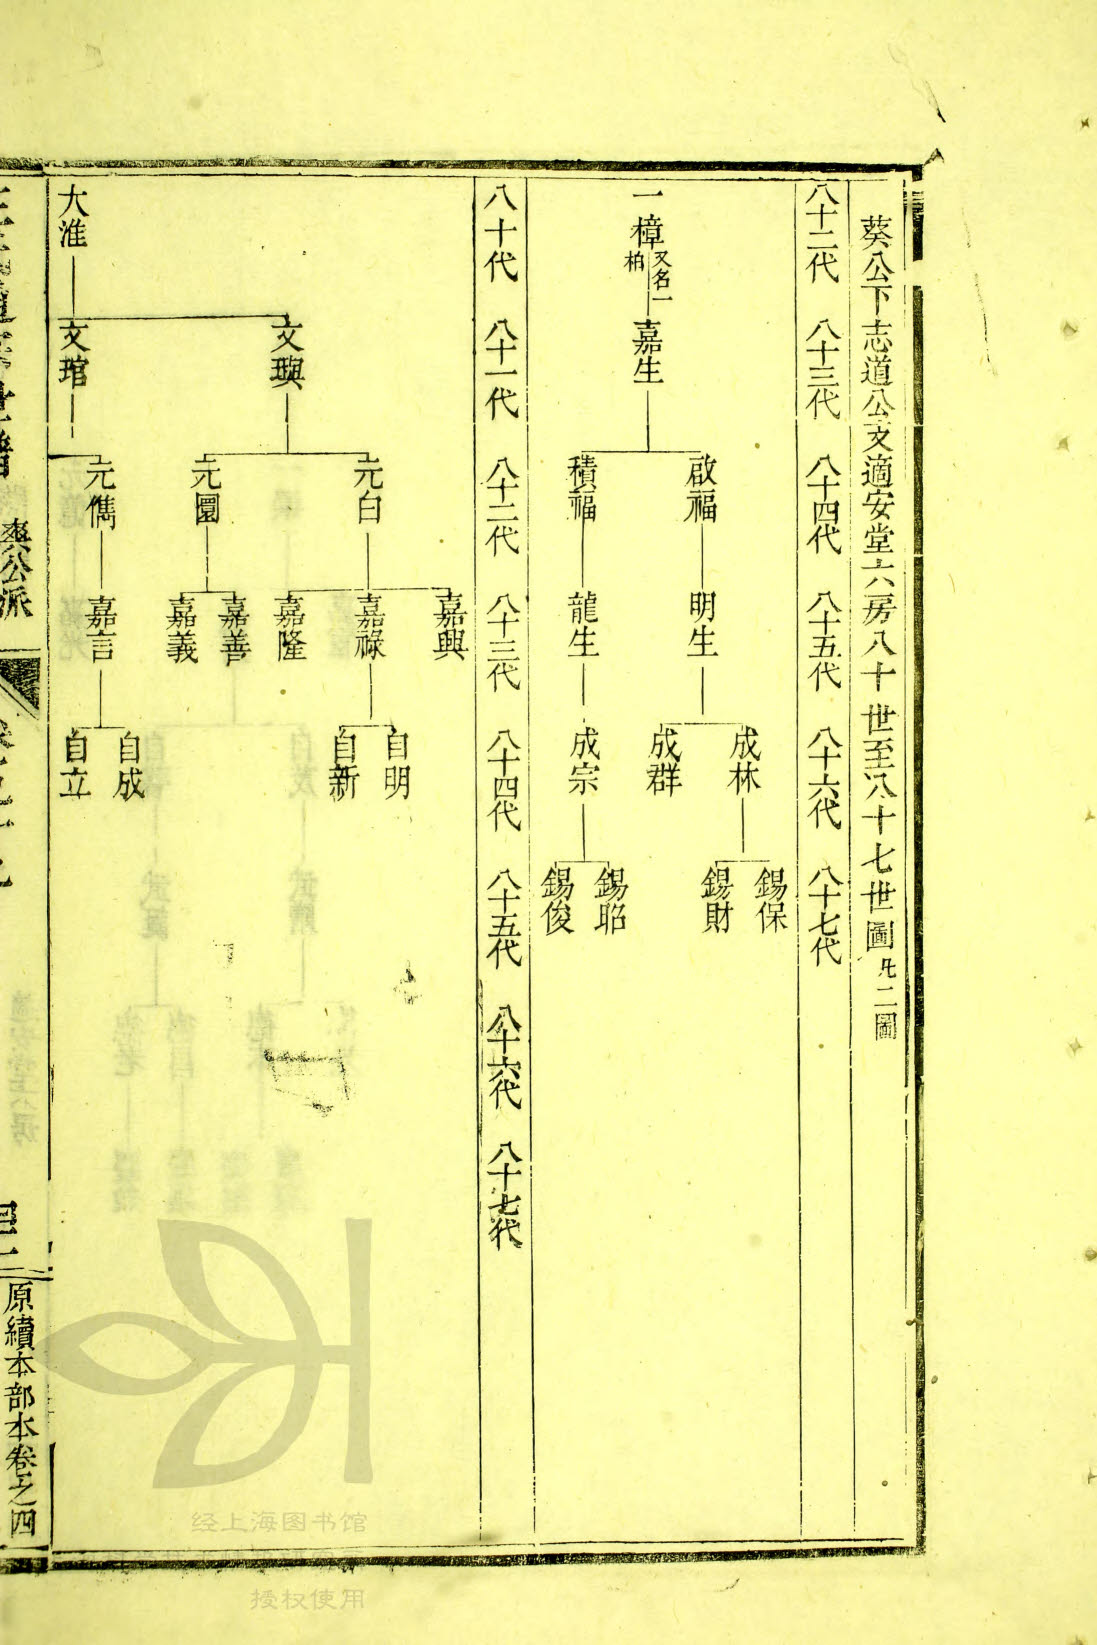 葵公下志道公支適安堂六房八十世至八十七世圖凡二圖
八十二代 八十三代 八十四代 八十五代 八十六代 八十七代
一樟又名一柏 嘉生
啟福 明生
成林
錫保
錫財
成群
積福 龍生 成宗
錫昭
錫俊
八十代 八十一代 八十二代 八十三代 八十四代 八十五代 八十六代 八十七代
大淮
文璵
元白
嘉興
嘉祿
自明
自新
嘉隆
元圜
嘉善
嘉義
文琯
元儁 嘉言
自成
自立
葵公派
原續本部本卷之四
经上海图书馆
授权使用